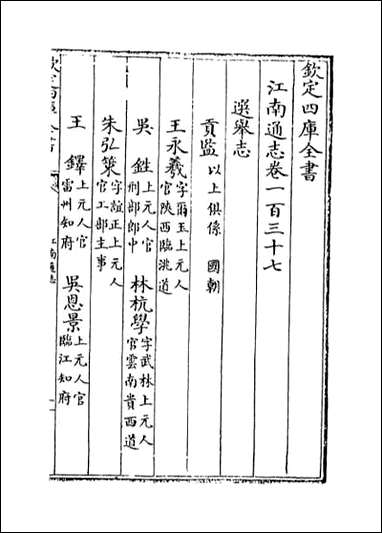 欽定四庫全書
江南通志卷一百三十七
選舉志
貢監以上俱係 國朝
王永羲字爾玉上元人官陝西臨洮道
吳甡上元人官刑部郎中 林杭學字武林上元人官雲南貴西道
朱弘䇿字誼正上元人官工部主事
王鐸上元人官雷州知府 吳恩景上元人官臨江知府
江南通志